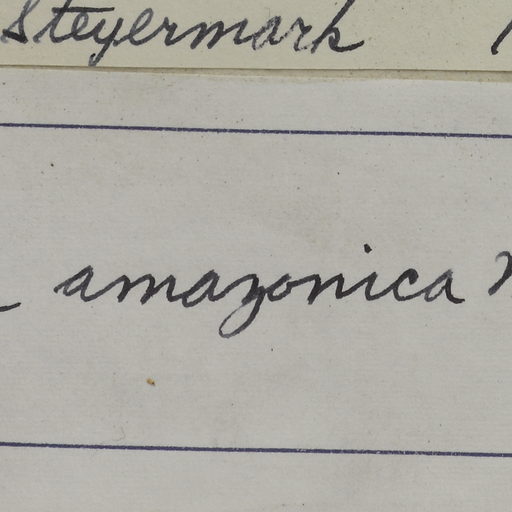 Steyermark
amazonica